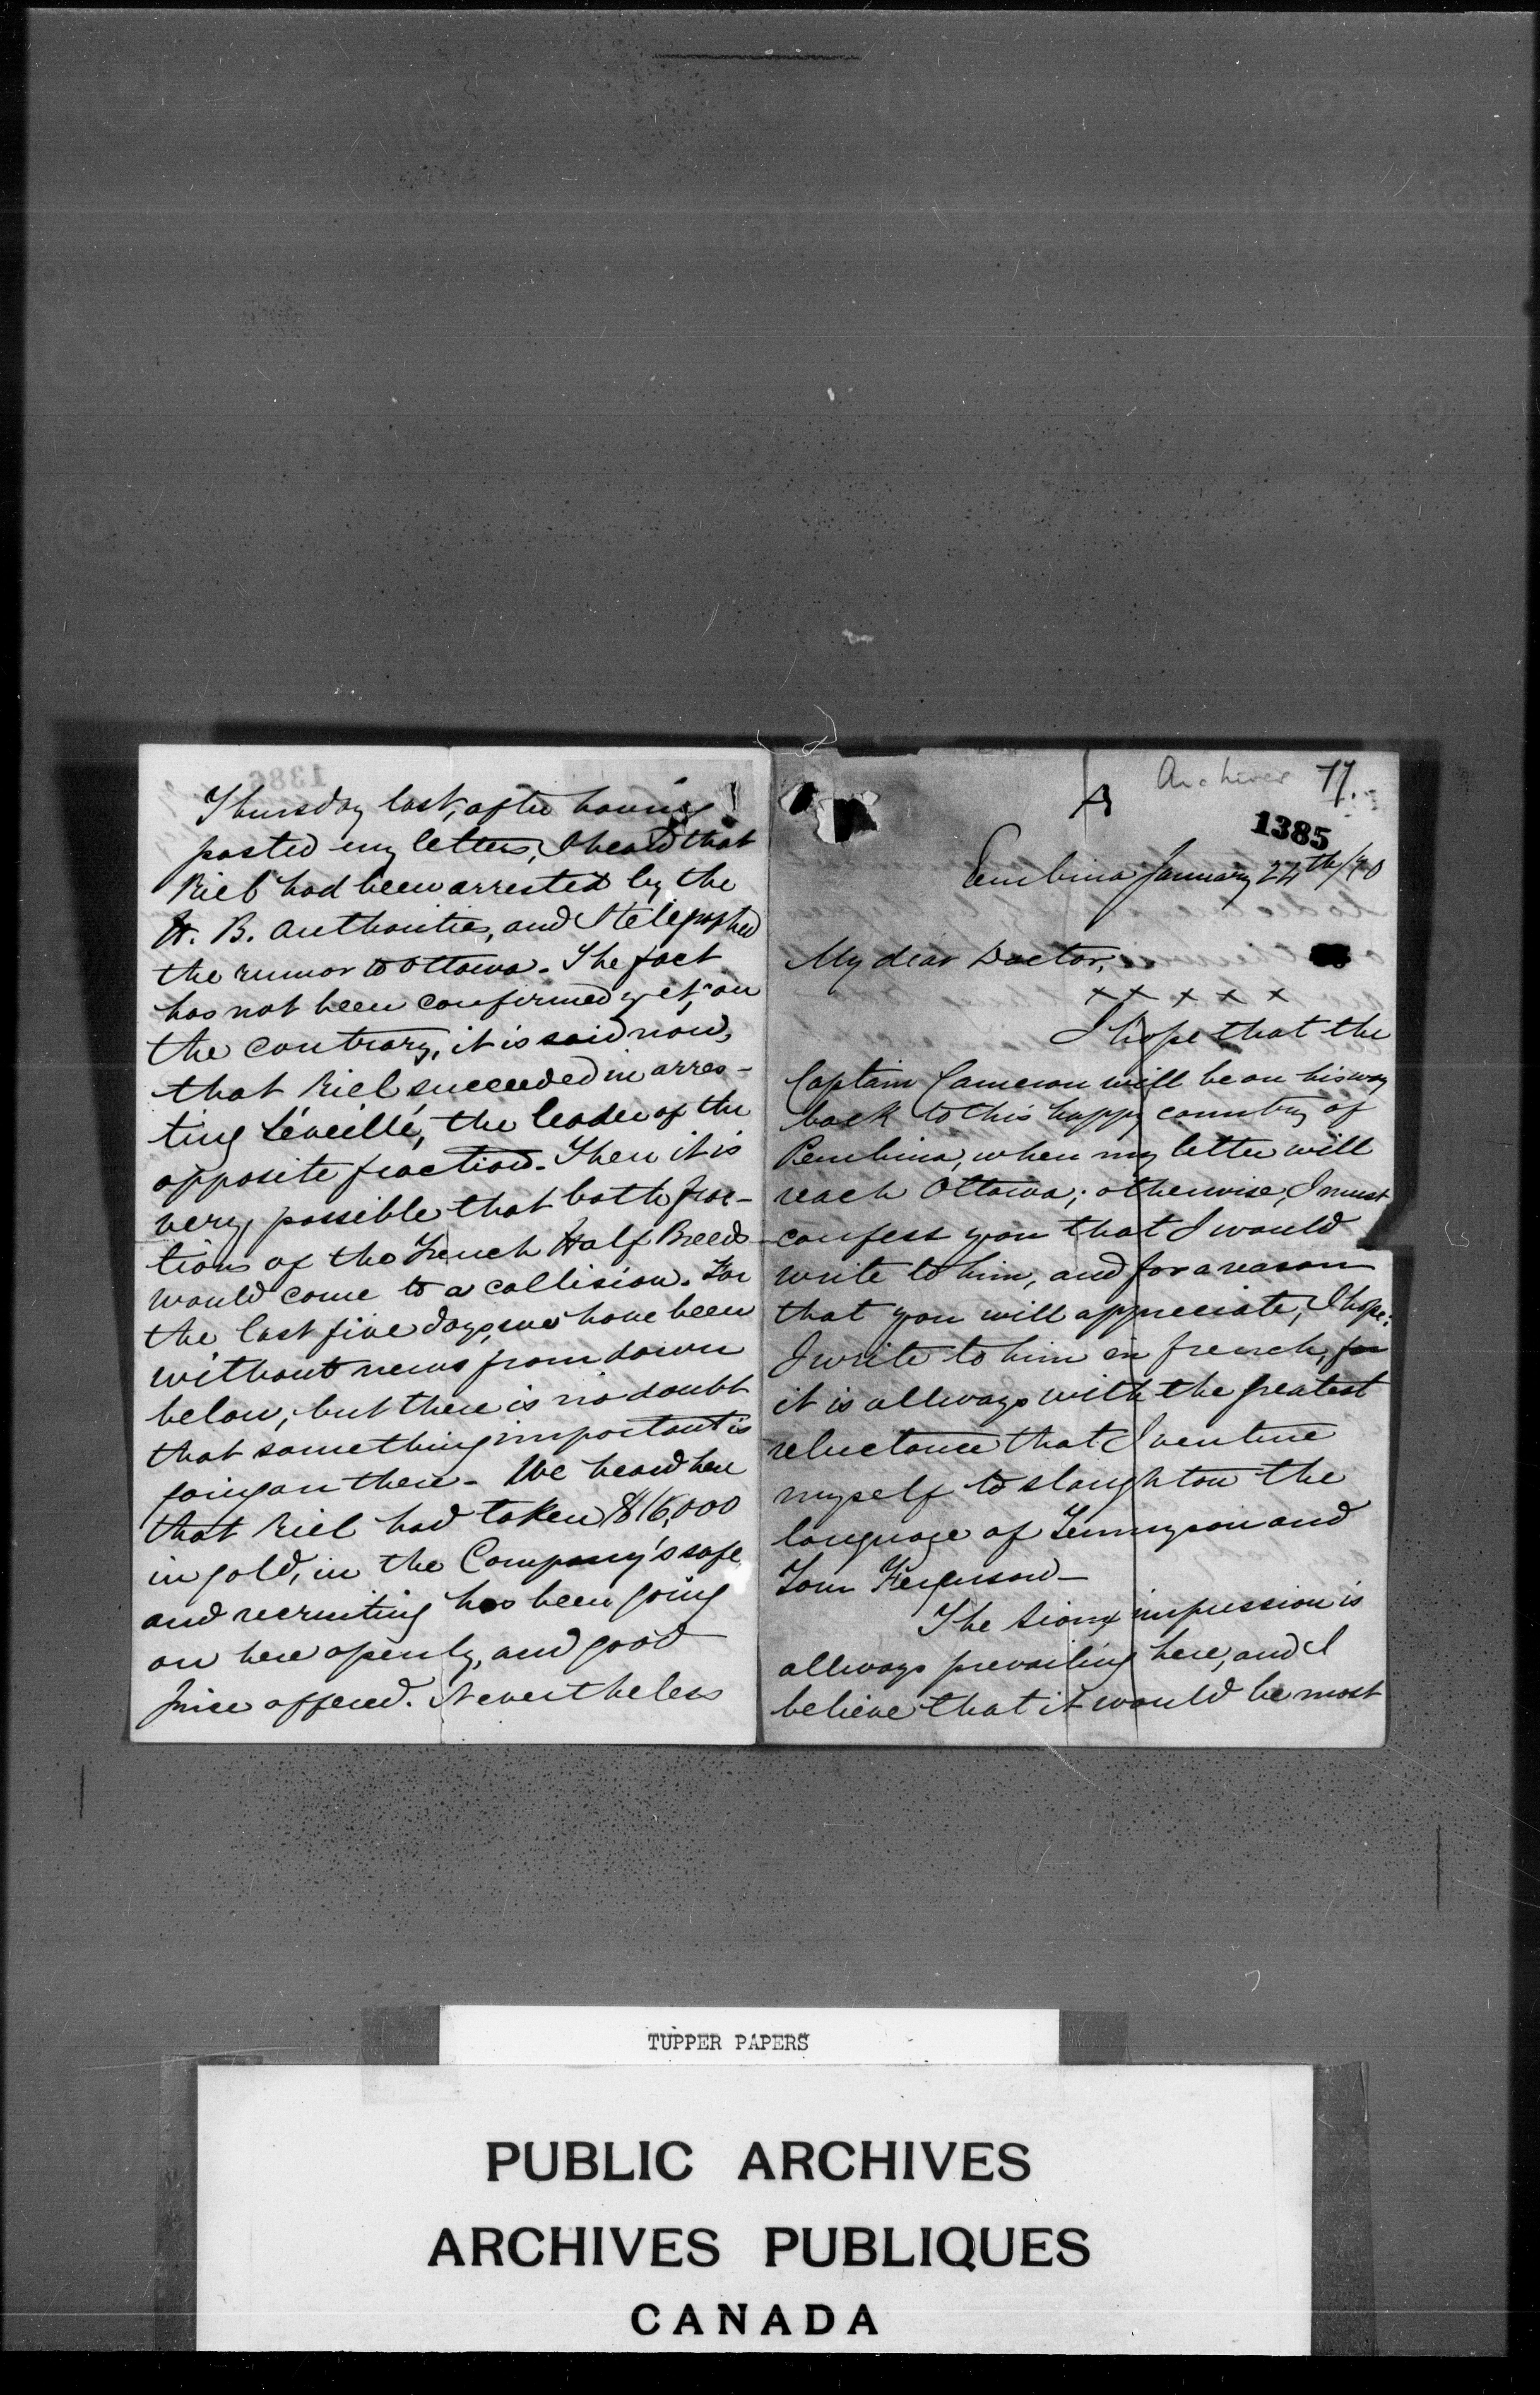 Thursday last, after having
posted my letters, I heard that
Riel had been arrested by the
H. B. Authorities, and I telegraphed
the rumor to Ottawa. The fact
has not been confirmed yet; on
the contrary, it is said now,
that Riel succeeded in arres-
ting Léveillé, the leader of the
opposite fraction. Then it is
very possible that both frac-
tions of the French Half Breeds
would come to a collision. For
the last five days, we have been
without news from down
below, but there is no doubt
that something important is
going on there. We heard here
that Riel had taken $16,000
in gold, in the Company's safe
and recruiting has been going
on here openly, and good
price offered. Nevertheless
Archives 77.
A
1385
Pembina January 24th/70
My dear Doctor,
x x x x x
I hope that the
Captain Cameron will be on his way
back to this happy country of
Pembina, when my letter will
reach Ottawa; otherwise, I must
confess you that I would
write to him, and for a reason
that you will appreciate, I hope:
I write to him in french, for
it is allways with the greatest
reluctance that I venture
myself to slaughton the
language of Tennyson and
Tom Ferguson—
The Sioux impression is
allways prevailing here, and I
believe that it would be most
TUPPER PAPERS
PUBLIC ARCHIVES
ARCHIVES PUBLIQUES
CANADA